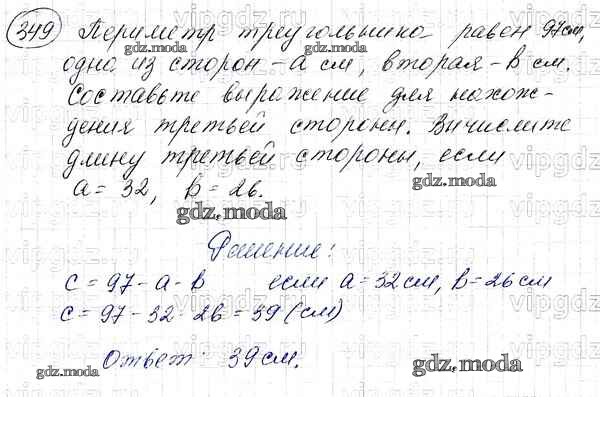 349 Периметр треугольника равен 97см,
одна из сторон - а см, вторая - в см.
Составьте выражение для нахож-
дения третьей стороны. Вычислите
длину третьей стороны, если
а = 32, в = 26.
Решение:
с = 97 - а - в если а = 32 см, в = 26 см
с = 97 - 32 - 26 = 39 (см)
Ответ: 39 см.
gdz.moda
vipgdz.ru